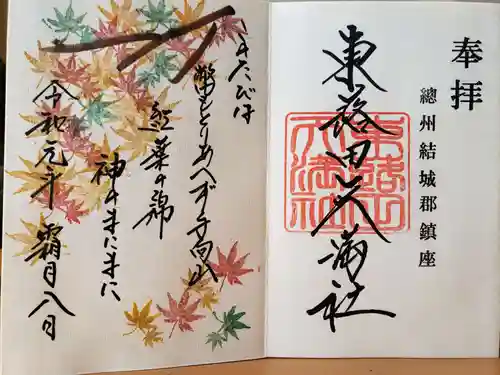 奉拝
總州結城郡鎮座
東蕗田天満社
東蕗田
天満社
このたびは
幣もとりあへず手向山
紅葉の錦
神のまにまに
令和元年 霜月八日